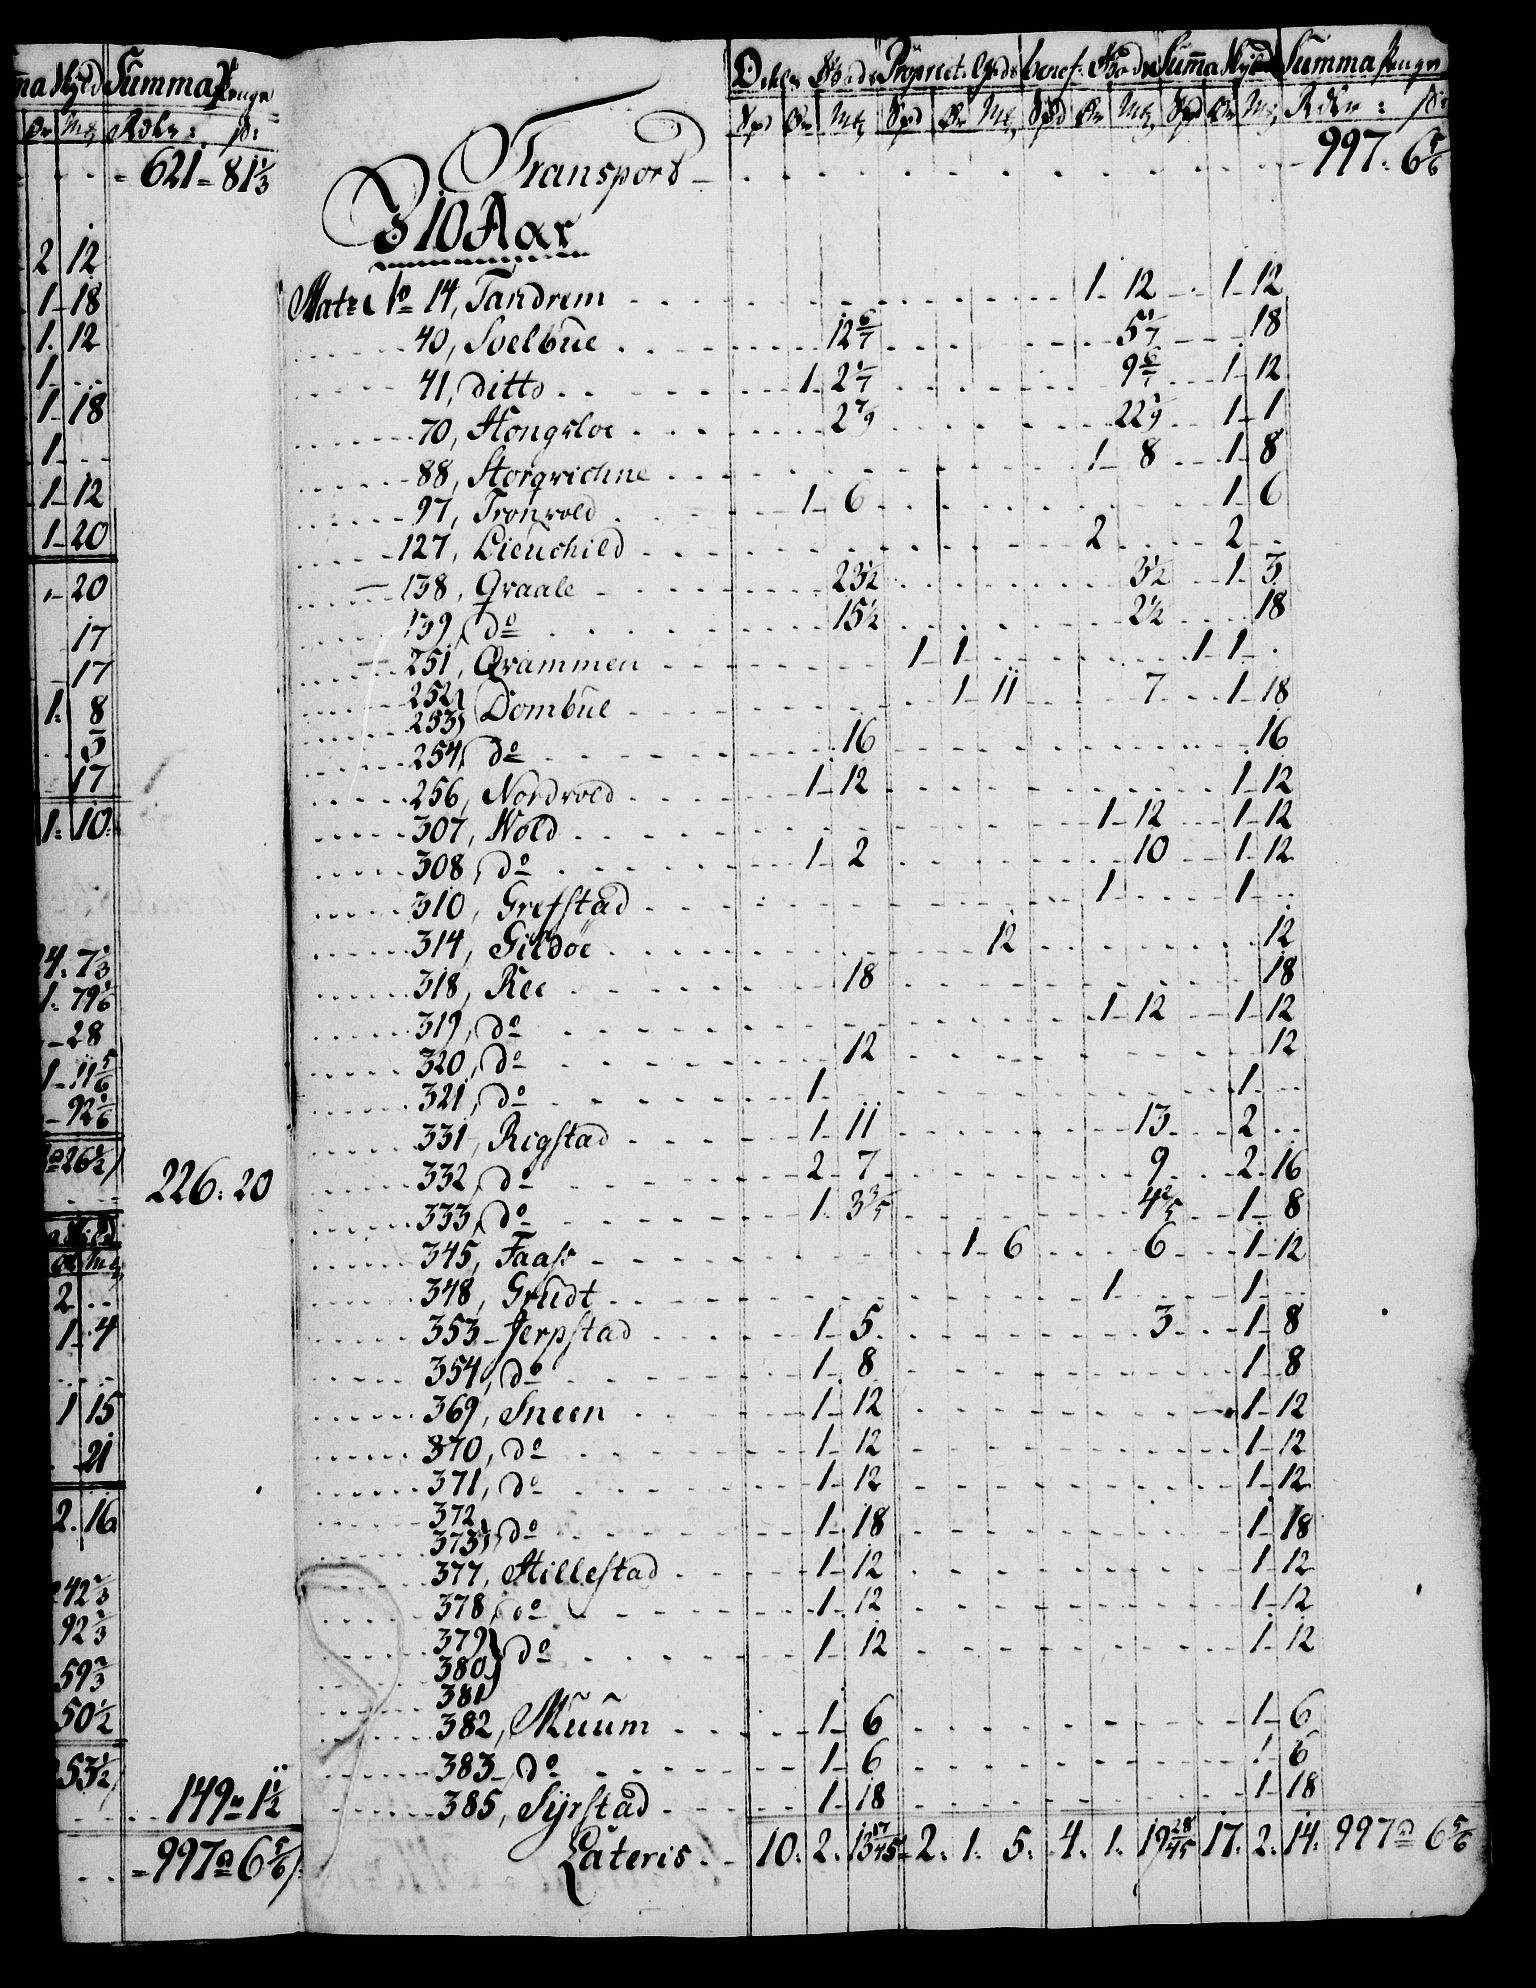 Summa Skyld Summa Penge
Ør Mk Rdlr: s:
621 - 81 1/3
2 12
1 - 18
1. 12
1 - ..
1 - 18
1 - ..
1 - 12
1 - 20
- 20
17
17
1. 8
5
17
1: 10:
4. 7 1/3
1. 79 1/6
- 28
1 - 11 5/6
- 92 1/6
26 1/2
226: 20
2 ..
1 - 4
1 15
21
2. 16
42 2/3
92 2/3
59 2/3
50 1/2
53 1/2
149 " 1 1/2
997 " 6 5/6
Odels Gods Propriet: Gods benef: Gods Summa Skyld Summa Penge
Spd Ør Mk Spd Ør Mk Spd Ør Mk Spd Ør Mk Rdlr: s:
Transport 997. 6 5/6
I 10 Aar
Matr: No 14, Tandrem 1 - 12 1 - 12
40, Soelbue 12 6/7 5 1/7 18
41, ditto 1 - 2 1/7 9 6/7 1 - 12
70, Hongsloe 2 7/9 22 2/9 1 - 1
88, Storqvichne 1 - 8 1 - 8
97, Tronvold 1 - 6 1 - 6
127, Lieuchild 2 2
138, Graale 23 1/2 3 1/2 1 - 3
139, do 15 1/2 2 1/2 18
251, Qvammen 1 - 1 1 - 1 -
252
253 Dombue 1 - 11 7 1 - 18
254, do 16 16
256, Nordvold 1 - 12 1 - 12
307, Wold 1 - 12 1 - 12
308, do 1 - 2 10 1 - 12
310, Grefstad 1 1 -
314, Gildøe 12 12
318, Ree 18 18
319, do 1 - 12 1 - 12
320, do 12 12
321, do 1 - 1 -
331, Rigstad 1 - 11 13 2 ..
332, do 2 - 7 9 2 - 16
333, do 1 - 3 3/5 4 2/5 1 - 8
345, Faass 1 - 6 6 1 - 12
348, Grudt 1 1 -
353, Jerpstad 1 - 5 3 1 - 8
354, do 1 - 8 1 - 8
369, Sneen 1 - 12 1 - 12
370, do 1 - 12 1 - 12
371, do 1 - 12 1 - 12
372
373, do 1 - 18 1 - 18
377, Hillestad 1 - 12 1 - 12
378, do 1 - 12 1 - 12
379
380 do 1 - 12 1 - 12
381
382, Muum 1 - 6 1 - 6
383, do 1 - 6 1 - 6
385, Syrstad 1 - 18 1 - 18
Lateris 10. 2. 13 17/45 2. 1. 5. 4. 1. 19 28/45 17. 2. 14. 997 " 6 5/6